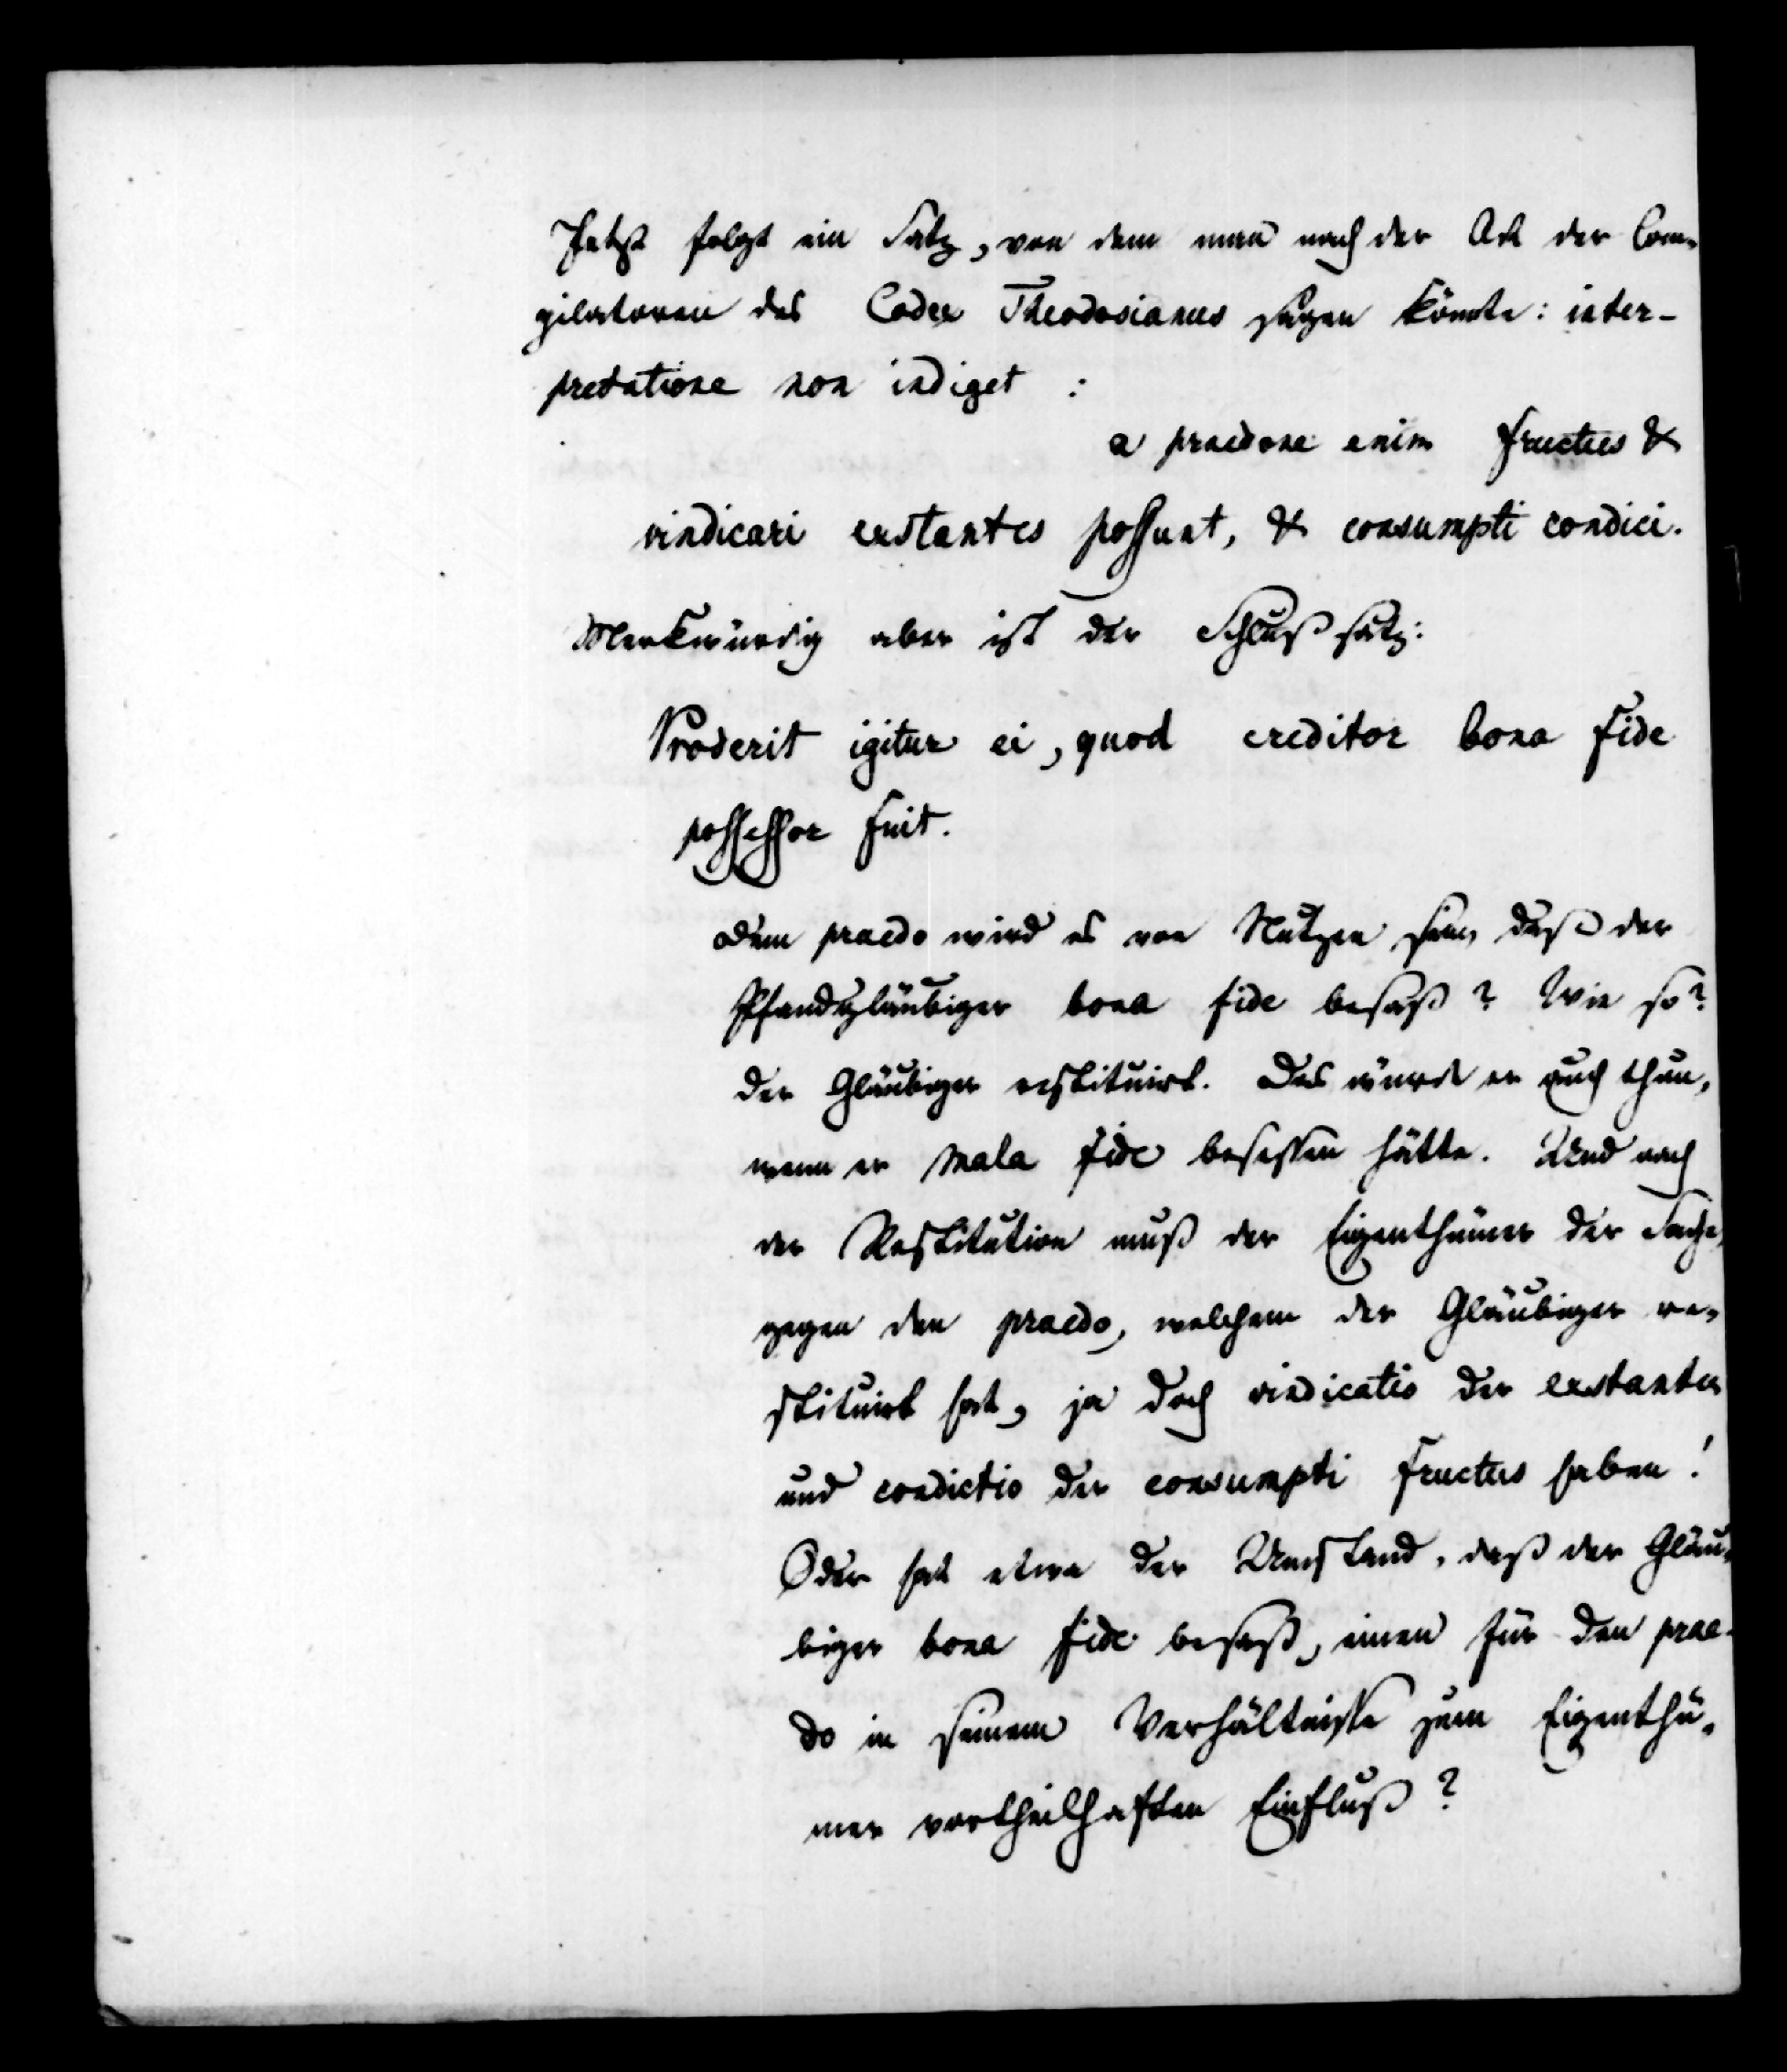 Jetzt folgt ein Satz, von dem man nach der Art der Com-
pilatoren des Codex Theodosianus sagen könnte: inter-
pretatione non indiget :
a praedone enim fructus &
vindicari exstantes possunt, & consumpti condici.
Merkwürdig aber ist der Schlußsatz:
Proderit igitur ei, quod creditor bona fide
possessor fuit.
Dem praedo wird es von Nutzen sein, daß der
Pfandgläubiger bona fide besaß? Wie so?
Der Gläubiger restituirt. Das würde er auch thun,
wenn er mala fide besessen hätte. Und nach
der Restitution muß der Eigenthümer der Sache,
gegen den praedo, welchem der Gläubiger re-
stituirt hat, ja doch vindicatio der exstantes
und condictio der consumpti fructus haben!
Oder hat etwa der Umstand, daß der Gläu-
biger bona fide besaß, einen für den prae-
do in seinem Verhältnisse zum Eigenthü-
mer vortheilhaften Einfluß?